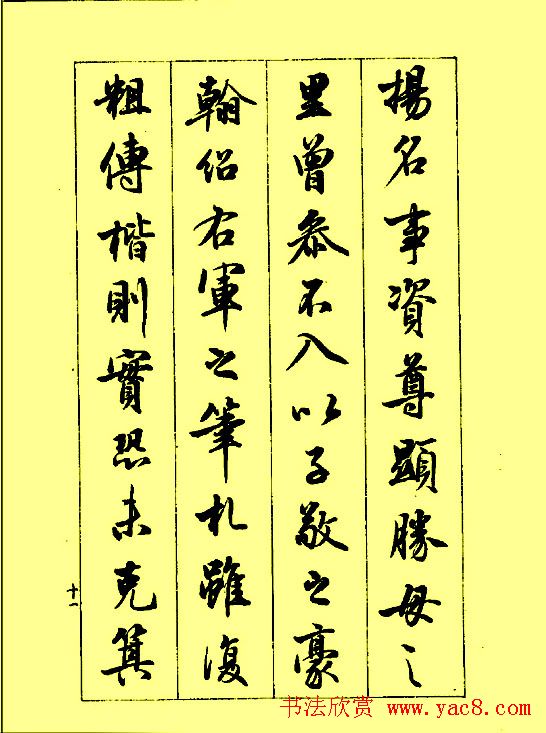 揚名事資尊顯勝母之
里曾叅不入以子敬之豪
翰紹右軍之筆札雖復
粗傳楷則實恐未克箕
十一
书法欣赏 www.yac8.com